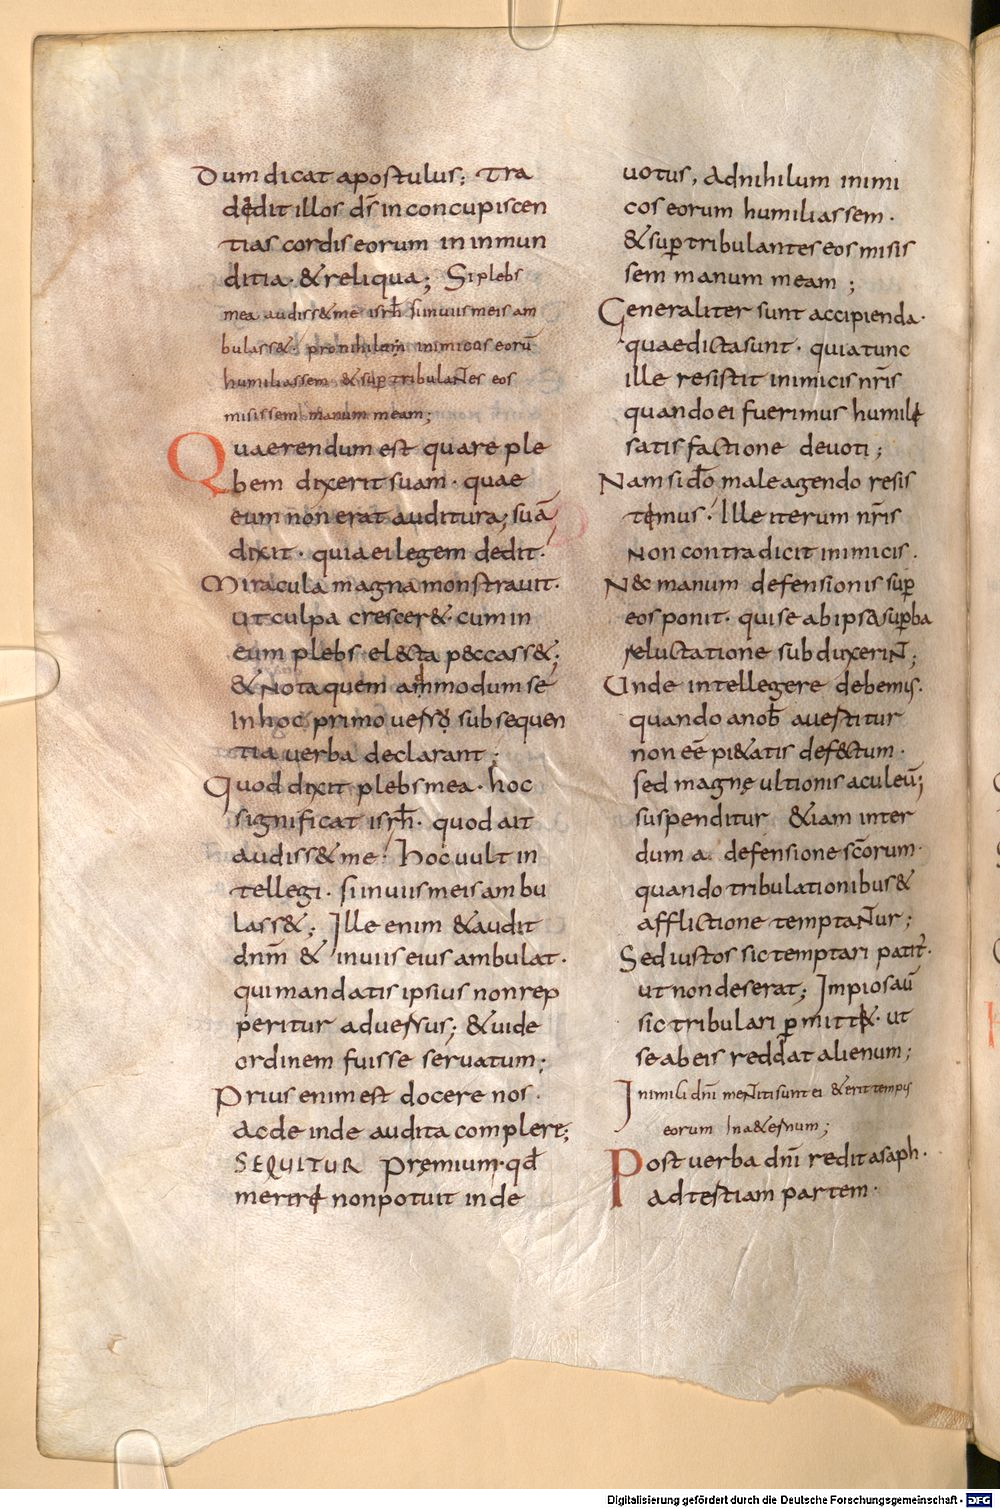 Dum dicat apostulus; Tra
dedit illos ds̄ in concupiscen
tias cordis eorum in inmun
ditia· & reliqua; Si plebs
mea audiss& me isrħ si in uiis meis am
bulass&· pro nihilum inimicus eorū
humiliassem & sup tribulantes eos
misissem manum meam;
Quaerendum est quare ple
bem dixerit suam· quae
eum non erat auditura; suā
dixit· quia ei legem dedit·
Miracula magna monstrauit·
ut culpa crescer&· cum in
eum plebs el&cta p&ccass&;
& Nota quem ammodum se
In hoc primo uerso subsequen
tia uerba declarant;
Quod dixit plebs mea· hoc
significat isrħ· quod ait
audiss& me· Hoc uult in
tellegi· si in uiis meis ambu
lass&; Ille enim & audit
dnm̄ & in uiis eius ambulat·
qui mandatis ipsius non rep
peritur aduersus; & uide
ordinem fuisse seruatum;
Prius enim est docere nos·
Ac de inde audita complere;
SEQUITUR Pręmium· qd̄
merire non potuit inde
uotus, Ad nihilum inimi
cos eorum humiliassem·
& sup tribulantes eos misis
sem manum meam;
Generaliter sunt accipienda·
quae dicta sunt· quia tunc
ille resistit inimicis nr̄is
quando ei fuerimus humile
satisfactione deuoti;
Nam si dō male agendo resis
temus· Ille iterum nr̄is
non contradicit inimicis·
N&c manum defensionis sup
eos ponit· qui se ab ipsa supba
reluctatione subduxerint;
Unde intellegere debemus·
quando a nob̄ auertitur
non eē pi&atis def&ctum·
sed magnę ultionis aculeū;
suspenditur &iam inter
dum a defensione sc̄orum·
quando tribulationibus &
afflictione temptantur;
Sed iustos sic temptari patit·
ut non deserat; Impios aū
sic tribulari pmitt&· ut
se ab eis reddat alienum;
Inimici dnī mentiti sunt ei & erit tempus
eorum In a&ernum;
Post uerba dnī redit asaph·
ad tertiam partem·
Digitalisierung gefördert durch die Deutsche Forschungsgemeinschaft - DFG